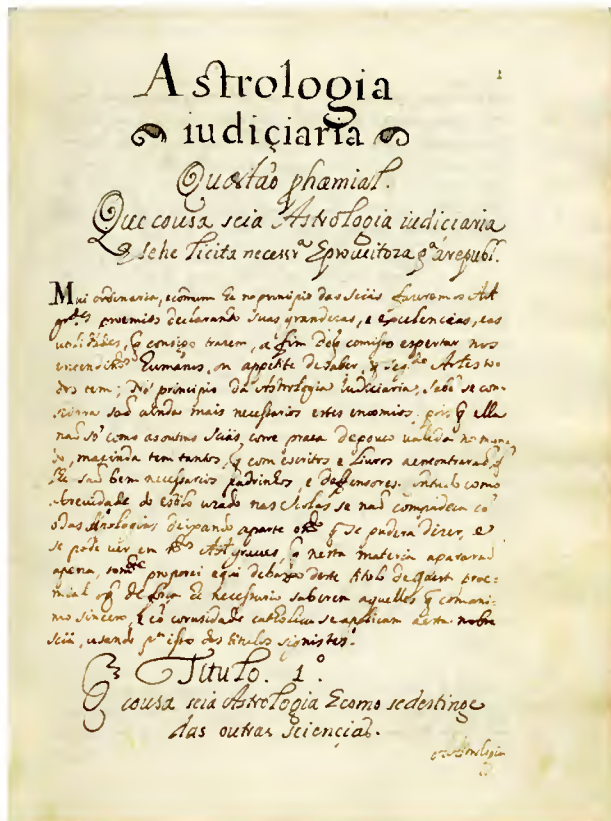 1
Astrologia
iudiçiaria
Questaõ phœmial.
Que cousa seia Astrologia iudiciaria
se he licita necessrª E prouitoza pª a republ.
Mui ordinario, e comum he no principio das sciãs
proemios declarando suas grandezas, e excelencias, e as
utilidades, q̃ consigo trazem, a fim
humanos, ou appetite de saber, q̃ Artes to-
dos tem; No principio da Astrologia Iudiciaria,
saõ ainda mais necessarios estes encomios; q̃ ella
naõ só como as outras sciãs, corre praça de pouco ualida no mun-
do, mas inda tem tantos, q̃ com escritos e liuros
he saõ bem necessarios padrinhos e defensores. como
breuidade do estilo uzado nas scholas se naõ compadeça cõ
Apologias deixando aparte q̃ se pudera dizer, e
se pode uer, em graues, q̃ nesta materia
proporei aqui debaxo deste titulo de proe-
mial q̃ he necessario saberem aquelles q̃ com ani-
mo sincero, e cõ coriusidade catholica se applicam a esta nobre
sciã, usando pª isso dos titulos siguintes.
Titulo. 1º.
Q cousa seia Astrologia E como se destinge
das outras scienciãs.